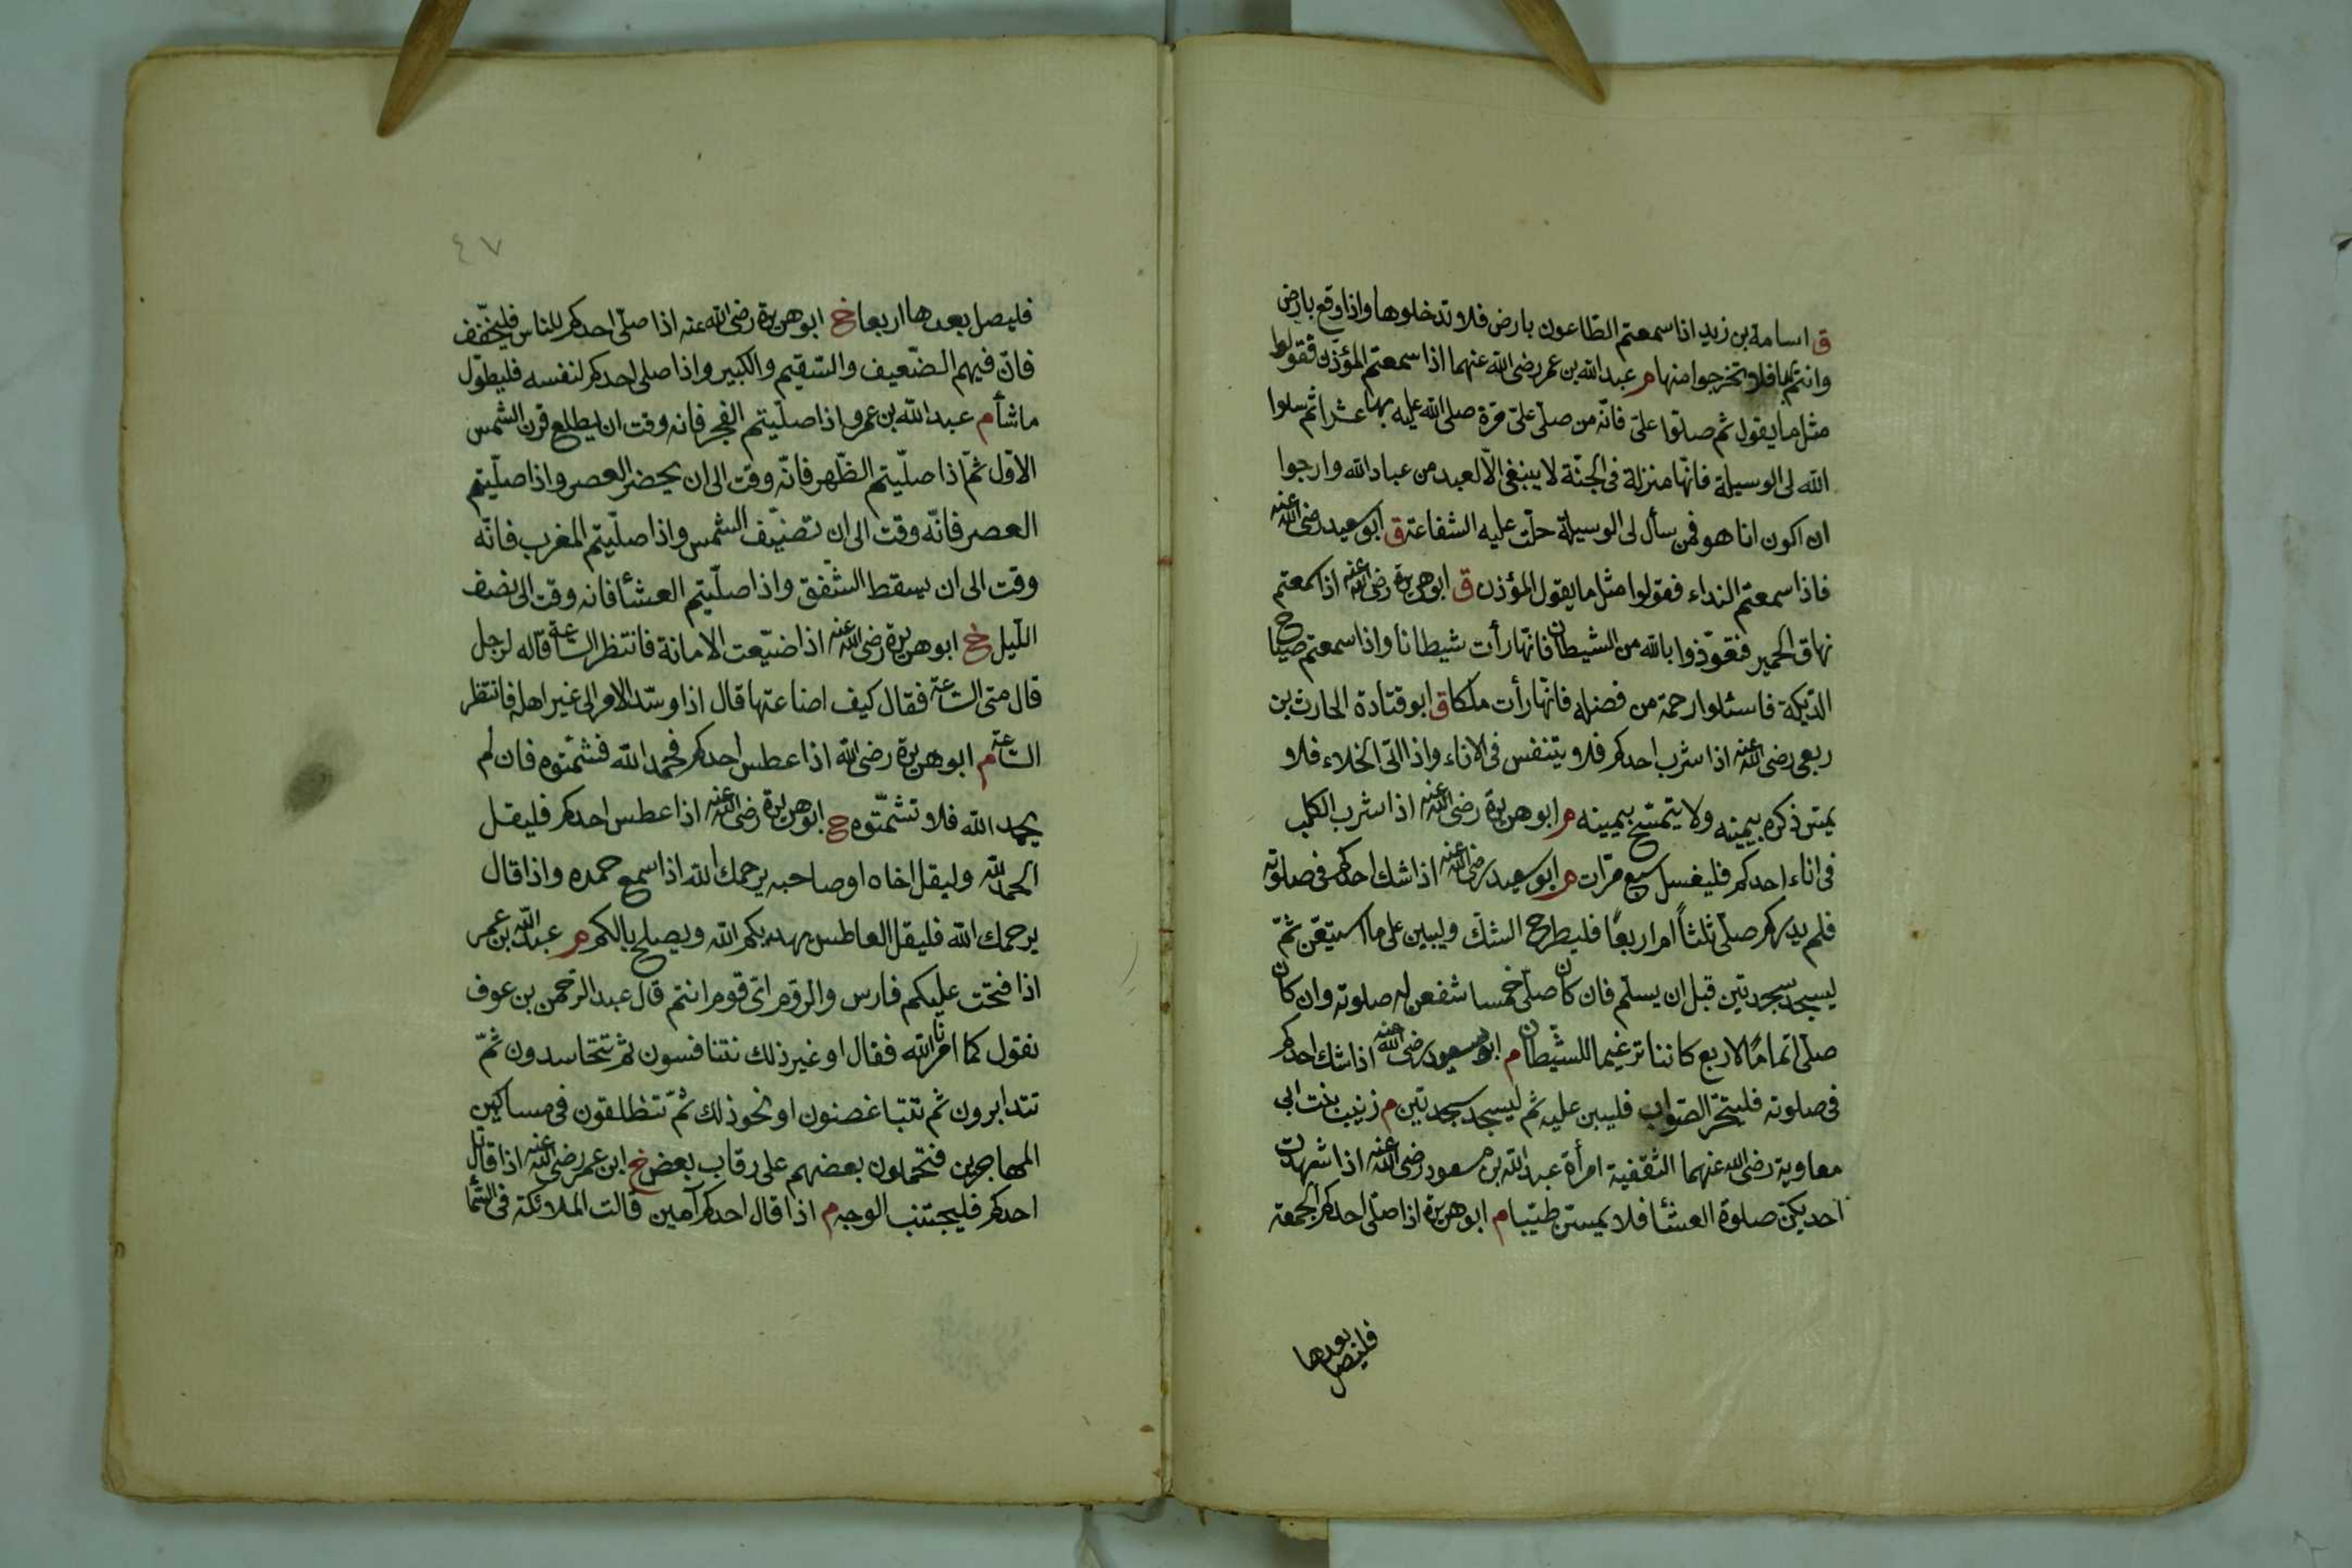 ق اسامة بن زيد اذا سمعتم الطاعون بارض فلا تدخلوها واذا وقع بارض
وانتم بها فلا تخرجوا منها م عبد الله بن عمر رضى الله عنهما اذا سمعتم المؤذن فقولوا
مثل ما يقول ثم صلوا علىّ فانّه من صلّى علىّ مرّة صلى الله عليه بها عشرا ثم سلوا
الله لى الوسيلة فانّها منزلة فى الجنّة لا ينبغى الّا لعبد من عباد الله وارجوا
ان اكون انا هو فمن سأل لى الوسيلة حلّت عليه الشفاعة ق ابو سعيد رضى الله عنه
فاذا سمعتم النداء فقولوا مثل ما يقول المؤذن ق ابو هريرة رضى الله عنه اذا سمعتم
نهاق الحمير فتعوّذوا بالله من الشيطان فانّها رأت شيطانا واذا سمعتم صياح
الديكة فاسئلوا رحمة من فضله فانّها رأت ملكا ق ابو قتادة الحارث بن
ربعى رضى الله عنه اذا شرب احدكم فلا يتنفس فى الاناء واذا اتى الخلاء فلا
يمسّ ذكره بيمينه ولا يتمسّح بيمينه م ابو هريرة رضى الله عنه اذا شرب الكلب
فى اناء احدكم فليغسل سبع مرّات م ابو سعيد رضى الله عنه اذا شك احدكم فى صلوته
فلم يدر كم صلّى ثلثاً ام اربعًا فليطرح الشكّ وليبن على ما استيقن ثمّ
ليسجد سجدتين قبل ان يسلّم فان كان صلّى خمسا شفعن له صلوته وان كان
صلّى اتمامًا لاربع كانتا ترغيما للشّيطان م ابن مسعود رضى الله عنه اذا شك احدكم
فى صلوته فليتحرّ الصّواب فليبن عليه ثم ليسجد سجدتين م زينب بنت ابى
معاوية رضى الله عنهما الثقفية امرأة عبد الله بن مسعود رضى الله عنه اذا شهدت
احديكنّ صلوة العشأ فلا يمسّن طيّبا م ابو هريرة اذا صلّى احدكم الجمعة
فليصل بعدها
٤٧
فليصل بعدها اربعا خ ابو هريرة رضى الله عنه اذا صلّى احدكم للناس فليخفّف
فانّ فيهم الضّعيف والسّقيم والكبير واذا صلى احدكم لنفسه فليطوّل
ما شأ م عبد الله بن عمرو اذا صلّيتم الفجر فانه وقت ان يطلع قرن الشمس
الاوّل ثمّ اذا صلّيتم الظّهر فانّه وقت الى ان يحضر العصر واذا صلّيتم
العصر فانّه وقت الى ان تضيّف الشمس واذا صلّيتم المغرب فانّه
وقت الى ان يسقط الشّفق واذا صلّيتم العشأ فانه وقت الى نصف
اللّيل خ ابو هريرة رضى الله عنه اذا ضيّعت الامانة فانتظر الساعة قاله لرجل
قال متى الساعة فقال كيف اضاعتها قال اذا وسّد الامر الى غير اهله فانتظر
الساعة م ابو هريرة رضى الله اذا عطس احدكم فحمد الله فشمّتوه فان لم
يحمد الله فلا تشمّتوه خ ابو هريرة رضى الله عنه اذا عطس احدكم فليقل
الحمد لله وليقل اخاه او صاحبه يرحمك الله اذا سمع حمده واذا قال
يرحمك الله فليقل العاطس يهديكم الله ويصلح بالكم م عبد الله بن عمر
اذا فتحت عليكم فارس والروم اىّ قوم انتم قال عبد الرحمن بن عوف
نقول كما امرنا الله فقال او غير ذلك تتنافسون ثم تتحاسدون ثمّ
تتدابرون ثم تتباغضون او نحو ذلك ثمّ تنطلقون فى مساكين
المهاجرين فتحملون بعضهم على رقاب بعض خ ابن عمر رضى الله عنه اذا قاتل
احدكم فليجتنب الوجه م اذا قال احدكم آمين قالت الملائكة فى السّمأ